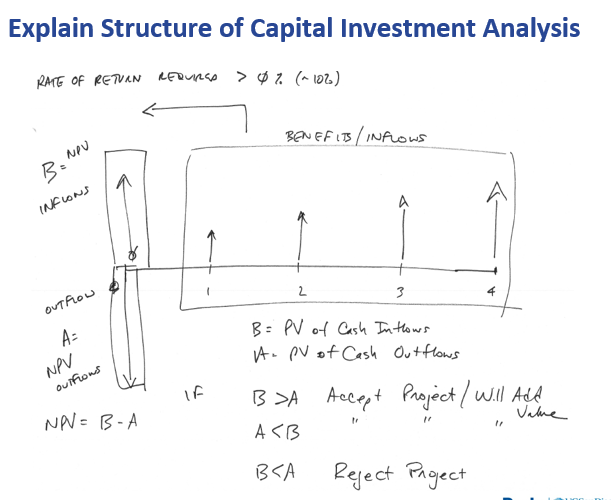 Explain Structure of Capital Investment Analysis
RATE OF RETURN REQUIRED > 0% (~10%)
BENEFITS/INFLOWS
B = NPV
INFLOWS
0
1 2 3 4
OUTFLOW
A =
NPV
OUTFLOWS
NPV = B - A
B = PV of Cash Inflows
A = PV of Cash Outflows
IF B > A Accept Project / Will Add Value
A < B " " "
B < A Reject Project